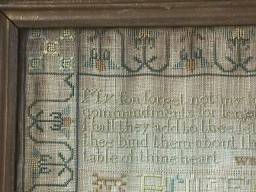 My son forget not my
commandments for leng
shall they add to thee
thee bind them about th
table of thine heart